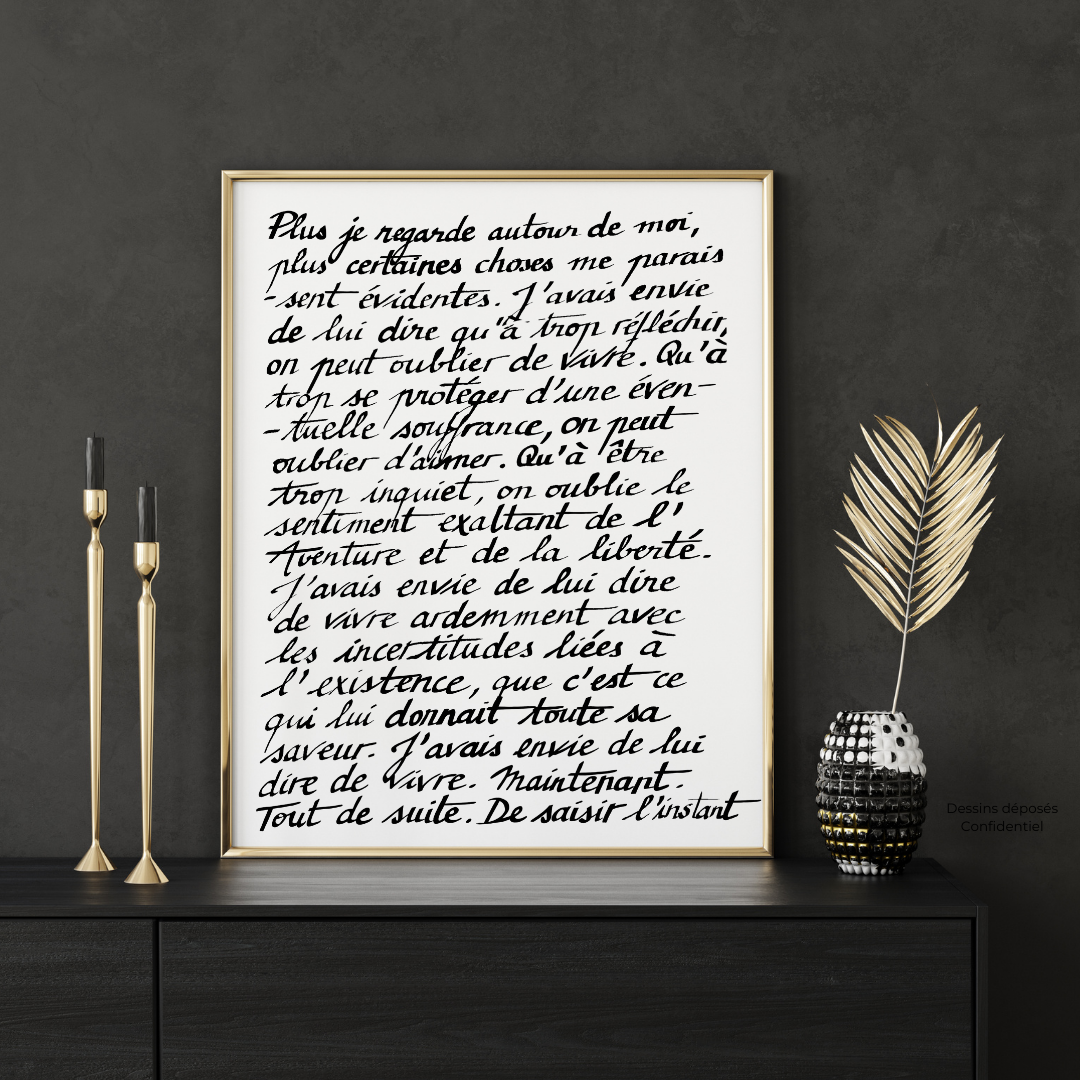 Plus je regarde autour de moi,
plus certaines choses me parais
-sent évidentes. J'avais envie
de lui dire qu'"à trop réfléchir,
on peut oublier de vivre. Qu'à
trop se protéger d'une éven-
-tuelle souffrance, on peut
oublier d'aimer. Qu'à être
trop inquiet, on oublie le
sentiment exaltant de l'
Aventure et de la liberté.
J'avais envie de lui dire
de vivre ardemment avec
les incertitudes liées à
l'existence, que c'est ce
qui lui donnait toute sa
saveur. J'avais envie de lui
dire de vivre. Maintenant.
Tout de suite. De saisir l'instant
Dessins déposés
Confidentiel